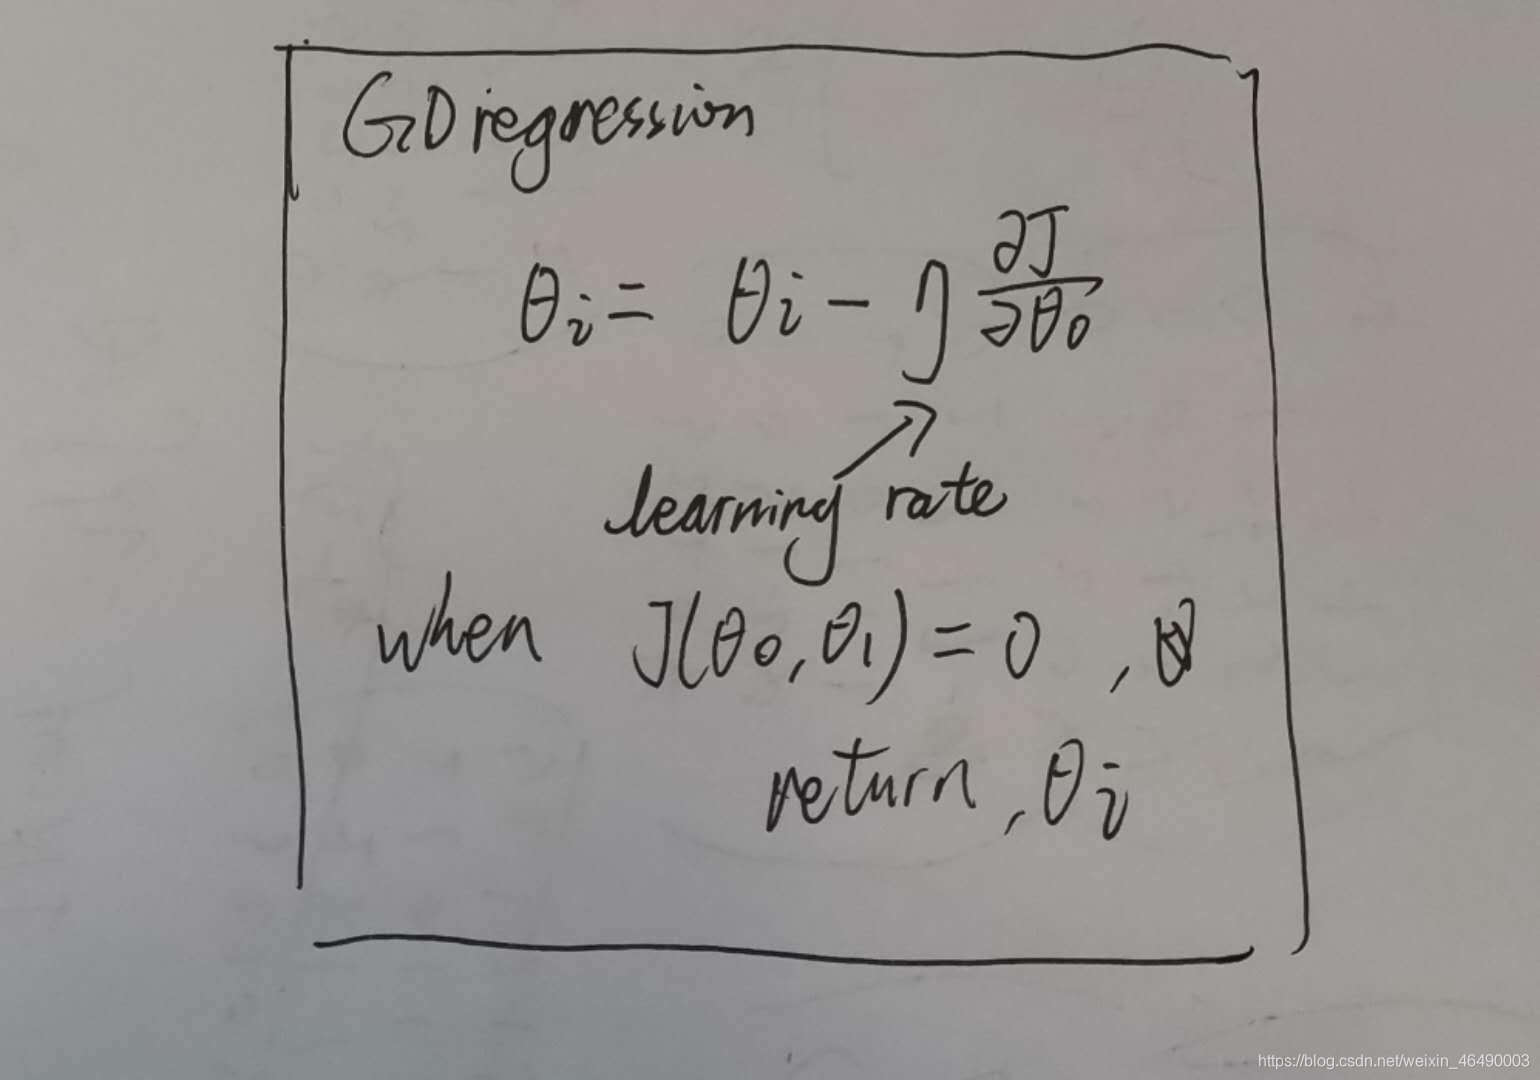 GD regression
θi = θi - η ∂J/∂θ0
learning rate
when J(θ0, θ1) = 0 ,
return, θi
https://blog.csdn.net/weixin_46490003